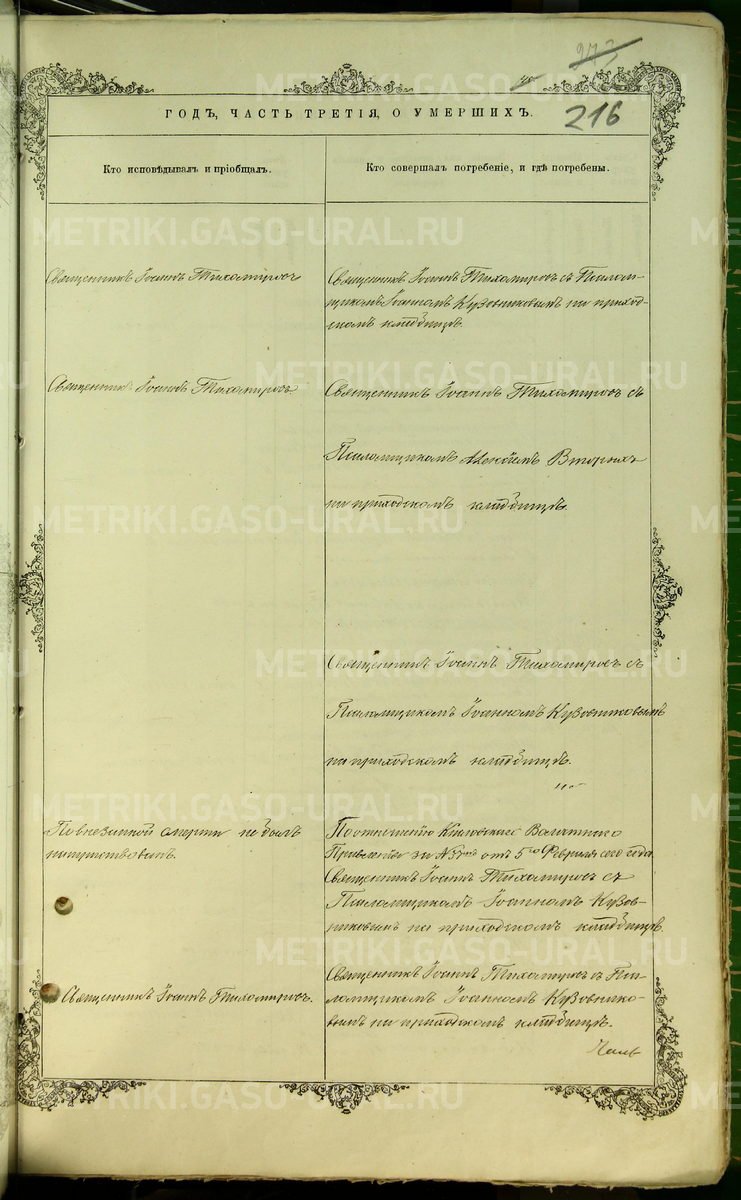 273
40
216
ГОДЪ, ЧАСТЬ ТРЕТІЯ, О УМЕРШИХЪ.
Кто исповѣдывалъ и пріобщалъ.
Кто совершалъ погребеніе, и гдѣ погребены.
Священникъ Іоаннъ Тихомировъ
Священникъ Іоаннъ Тихомировъ съ Псалом-
щикомъ Іоанномъ Кузовниковымъ на приход-
скомъ кладбищѣ.
Священникъ Іоаннъ Тихомировъ
Священникъ Іоаннъ Тихомировъ съ
Псаломщикомъ Алексіемъ Вторыхъ
на приходскомъ кладбищѣ.
Священникъ Іоаннъ Тихомировъ съ
Псаломщикомъ Іоанномъ Кузовниковымъ
на приходскомъ кладбищѣ.
По внезапной смерти не былъ
напутствованъ.
По отношенію Волостнаго
Правленія за № отъ 5го Февраля сего года
Священникъ Іоаннъ Тихомировъ съ
Псаломщикомъ Іоанномъ Кузов-
никовымъ на приходскомъ кладбищѣ.
Священникъ Іоаннъ Тихомировъ.
Священникъ Іоаннъ Тихомировъ съ Пса-
ломщикомъ Іоанномъ Кузовнико-
вымъ на приходскомъ кладбищѣ.
METRIKI.GASO-URAL.RU